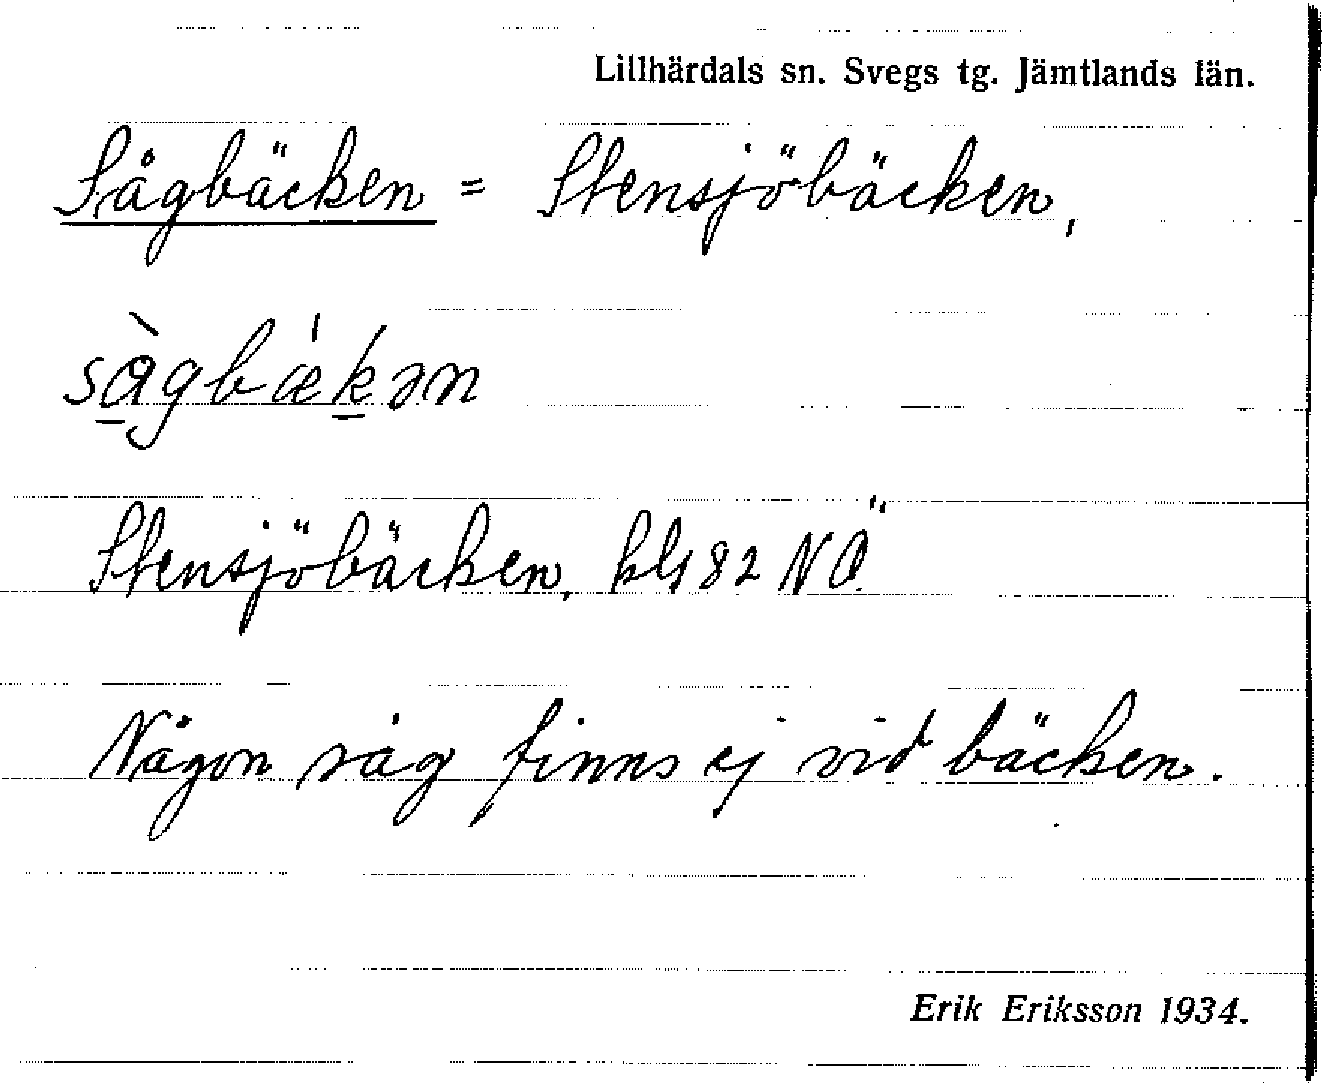 Lillhärdals sn. Svegs tg. Jämtlands län.
Sågbäcken = Stensjöbäcken,
sågbækən
Stensjöbäcken, kbl 82 NÖ.
Någon såg finns ej vid bäcken.
Erik Eriksson 1934.